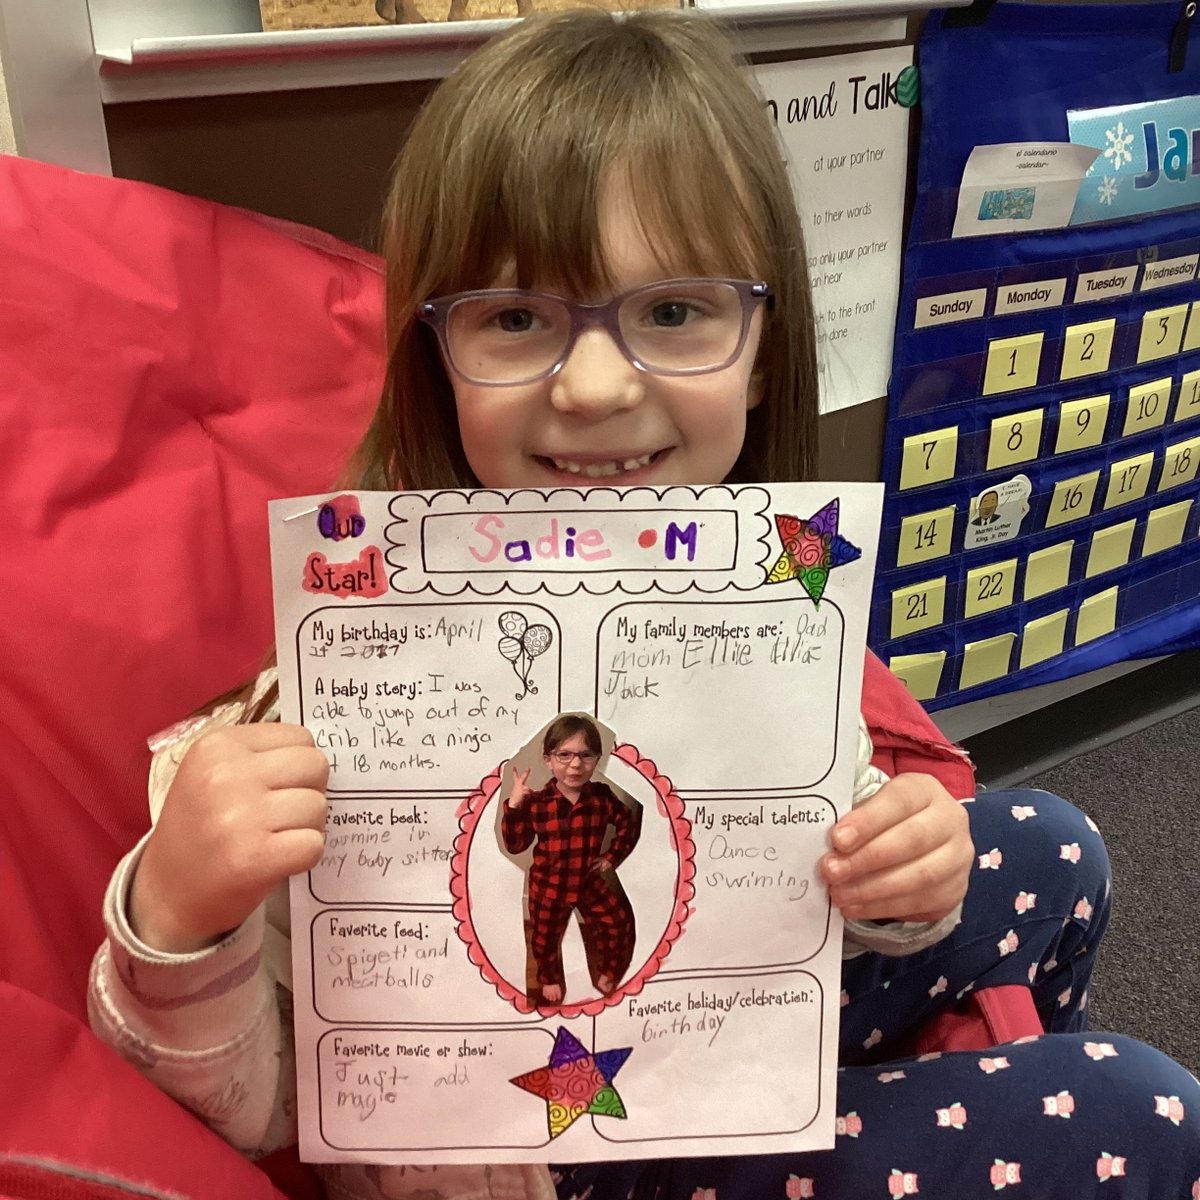 and Talk
at your partner
to their words
so only your partner
an hear
ck to the front
en done
el calendario
-calendar-
Jan
Sunday Monday Tuesday Wednesday
1 2 3
7 8 9 10 11
14 I HAVE A DREAM Martin Luther King, Jr. Day 16 17 18
21 22
Our
Star!
Sadie • M
My birthday is: April
2017
A baby story: I was
able to jump out of my
crib like a ninja
at 18 months.
My family members are: Dad
mom Ellie
Jack
Favorite book:
Jasmine is
my baby sitter
My special talents:
Dance
swiming
Favorite food:
Spigeti and
meatballs
Favorite holiday/celebration:
birthday
Favorite movie or show:
Just add
magic